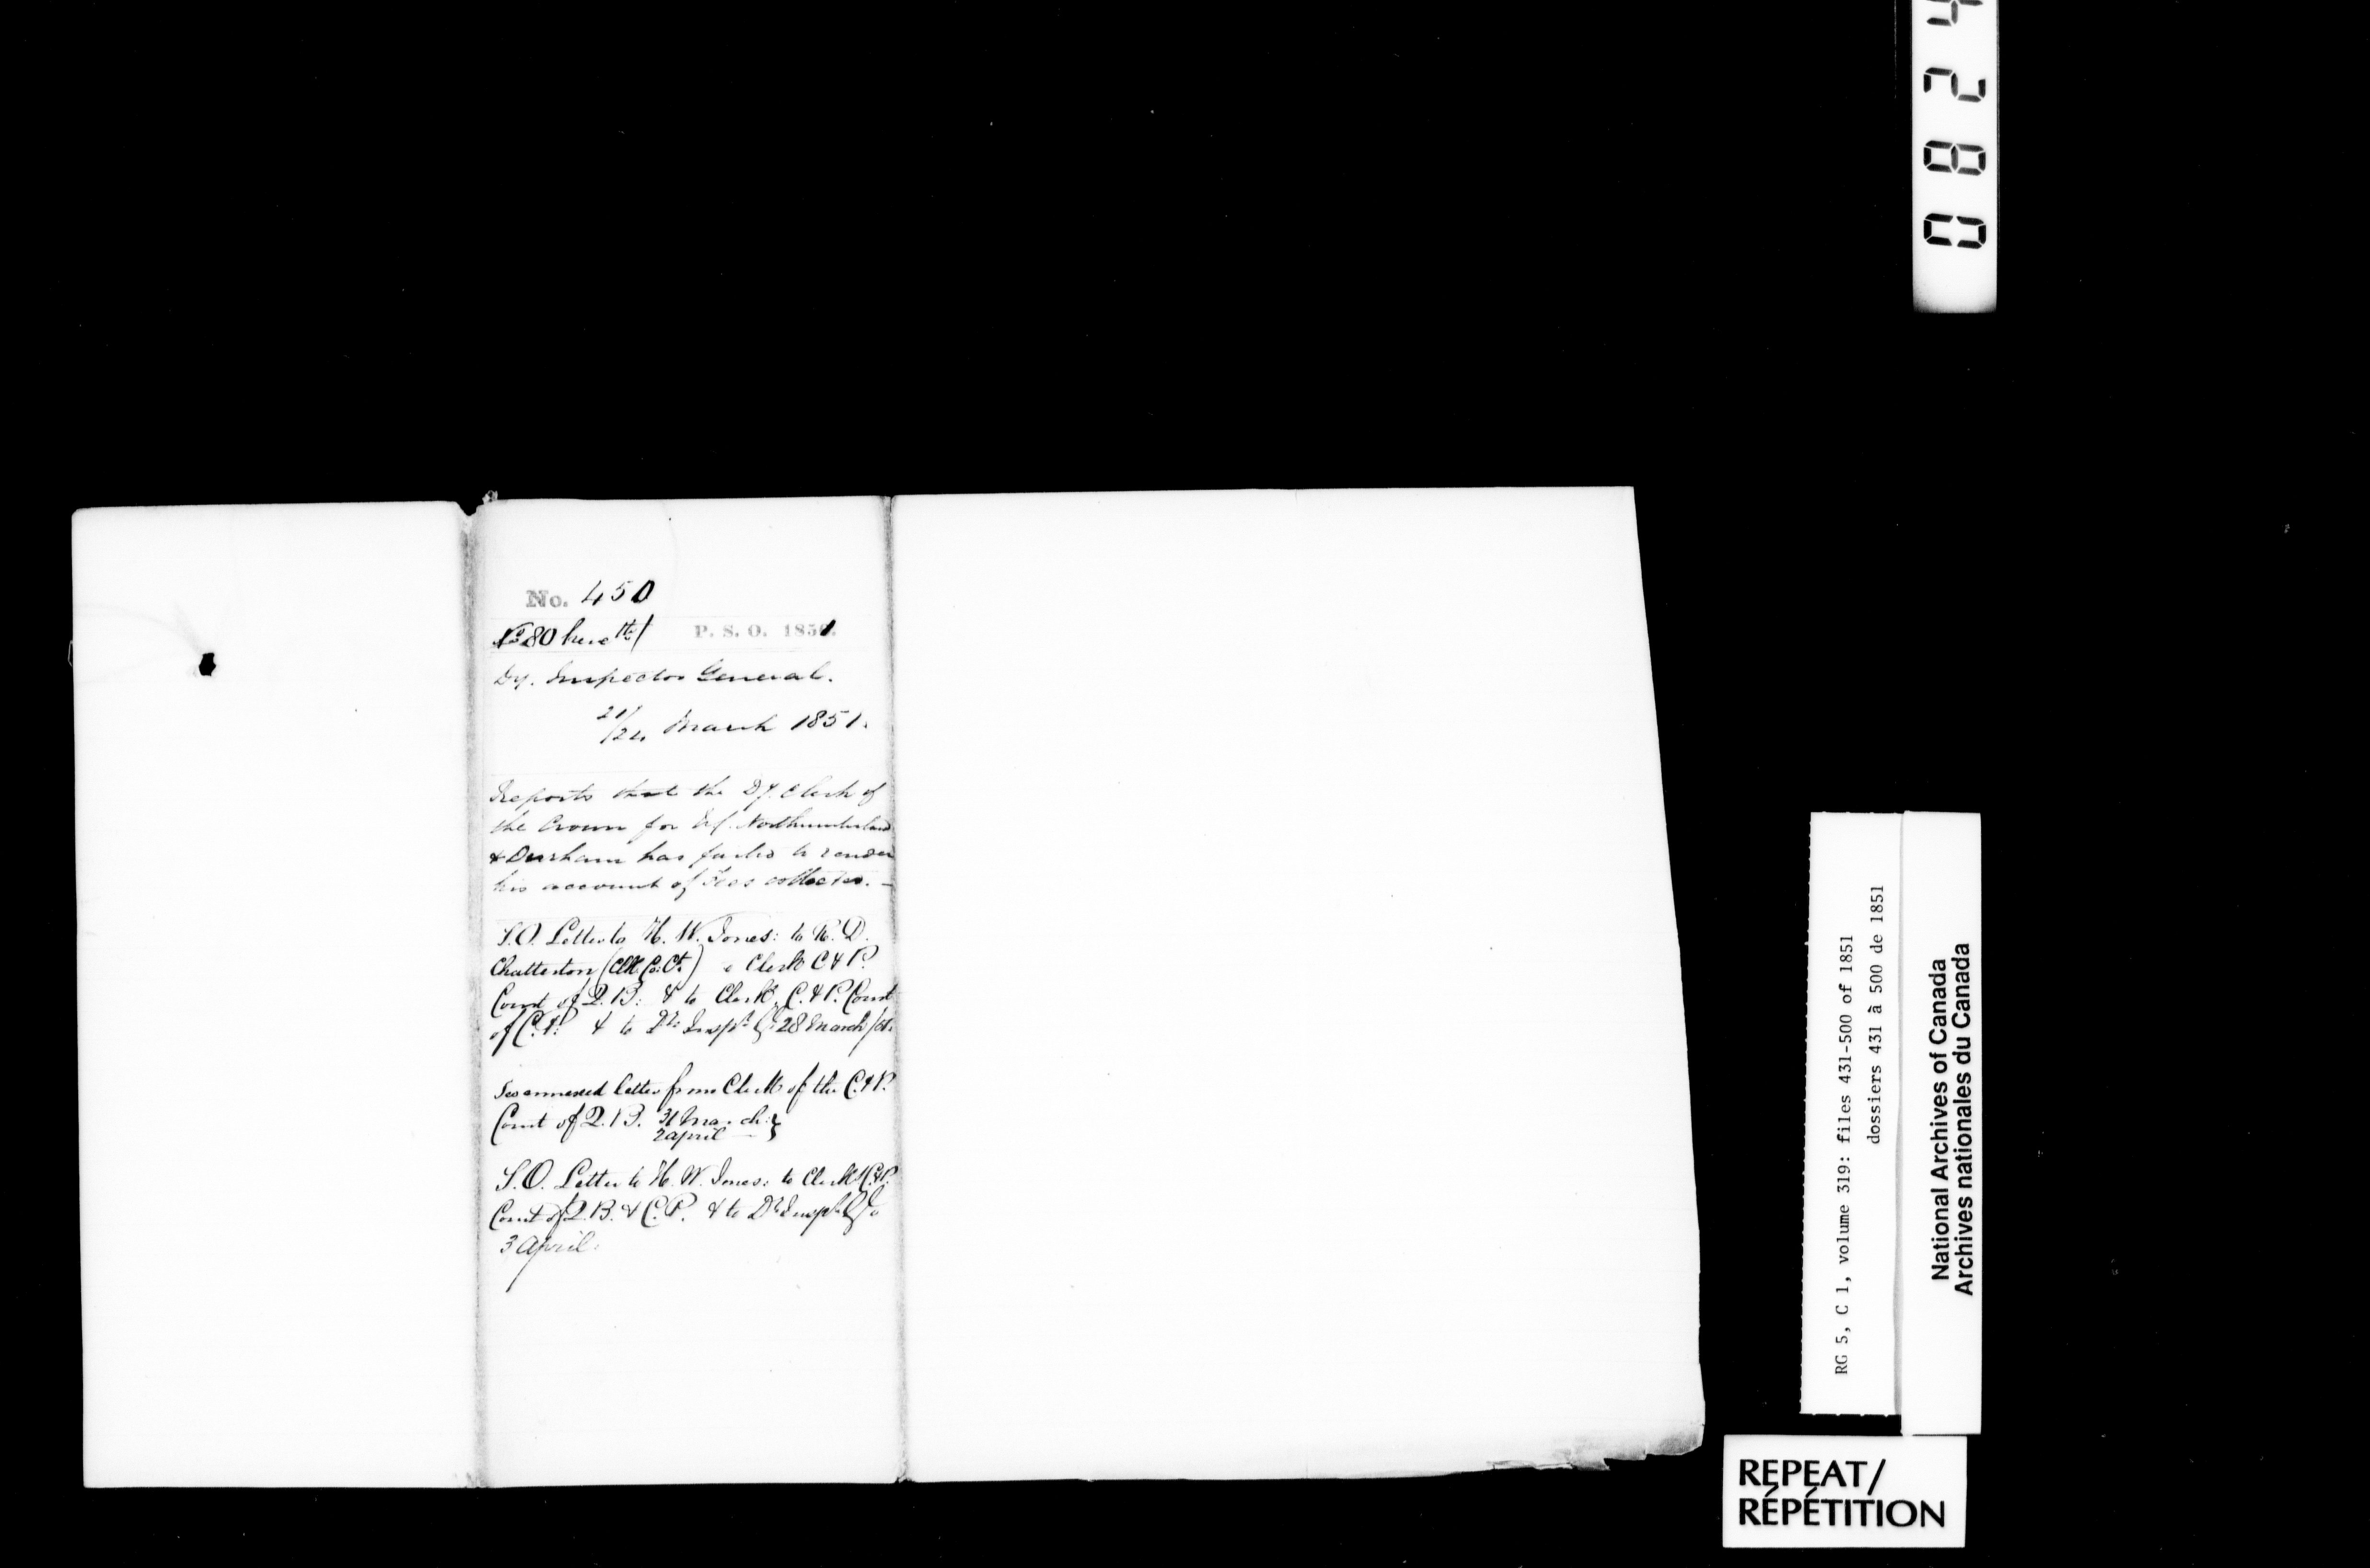 No. 450
No 80 herewth/ P. S. O. 1851.
Dy. Inspector General.
21/24 March 1851.
Reports that the Dy. Clerk of
the Crown for Northumberland
& Durham has failed to render
his account of Fees collected. —
S.O. Letter to H. W. Jones: to R. D.
Chatterton (Clk Co. Ct.) Clerk C & P.
Court of Q. B: & to Clerk, C. & P. Court
of C. P. & to Dy. Inspr. G. 28 March
See annexed letter from Clerk of the C. & P.
Court of Q. B. 31 March
2 april
S.O. Letter to H. W. Jones: to Clerk C. & P.
Court of Q. B. & C. P. & to Dy Inspr. Gl.
3 April.
0824
RG 5, C 1, volume 319: files 431-500 of 1851
dossiers 431 à 500 de 1851
National Archives of Canada
Archives nationales du Canada
REPEAT/
RÉPÉTITION